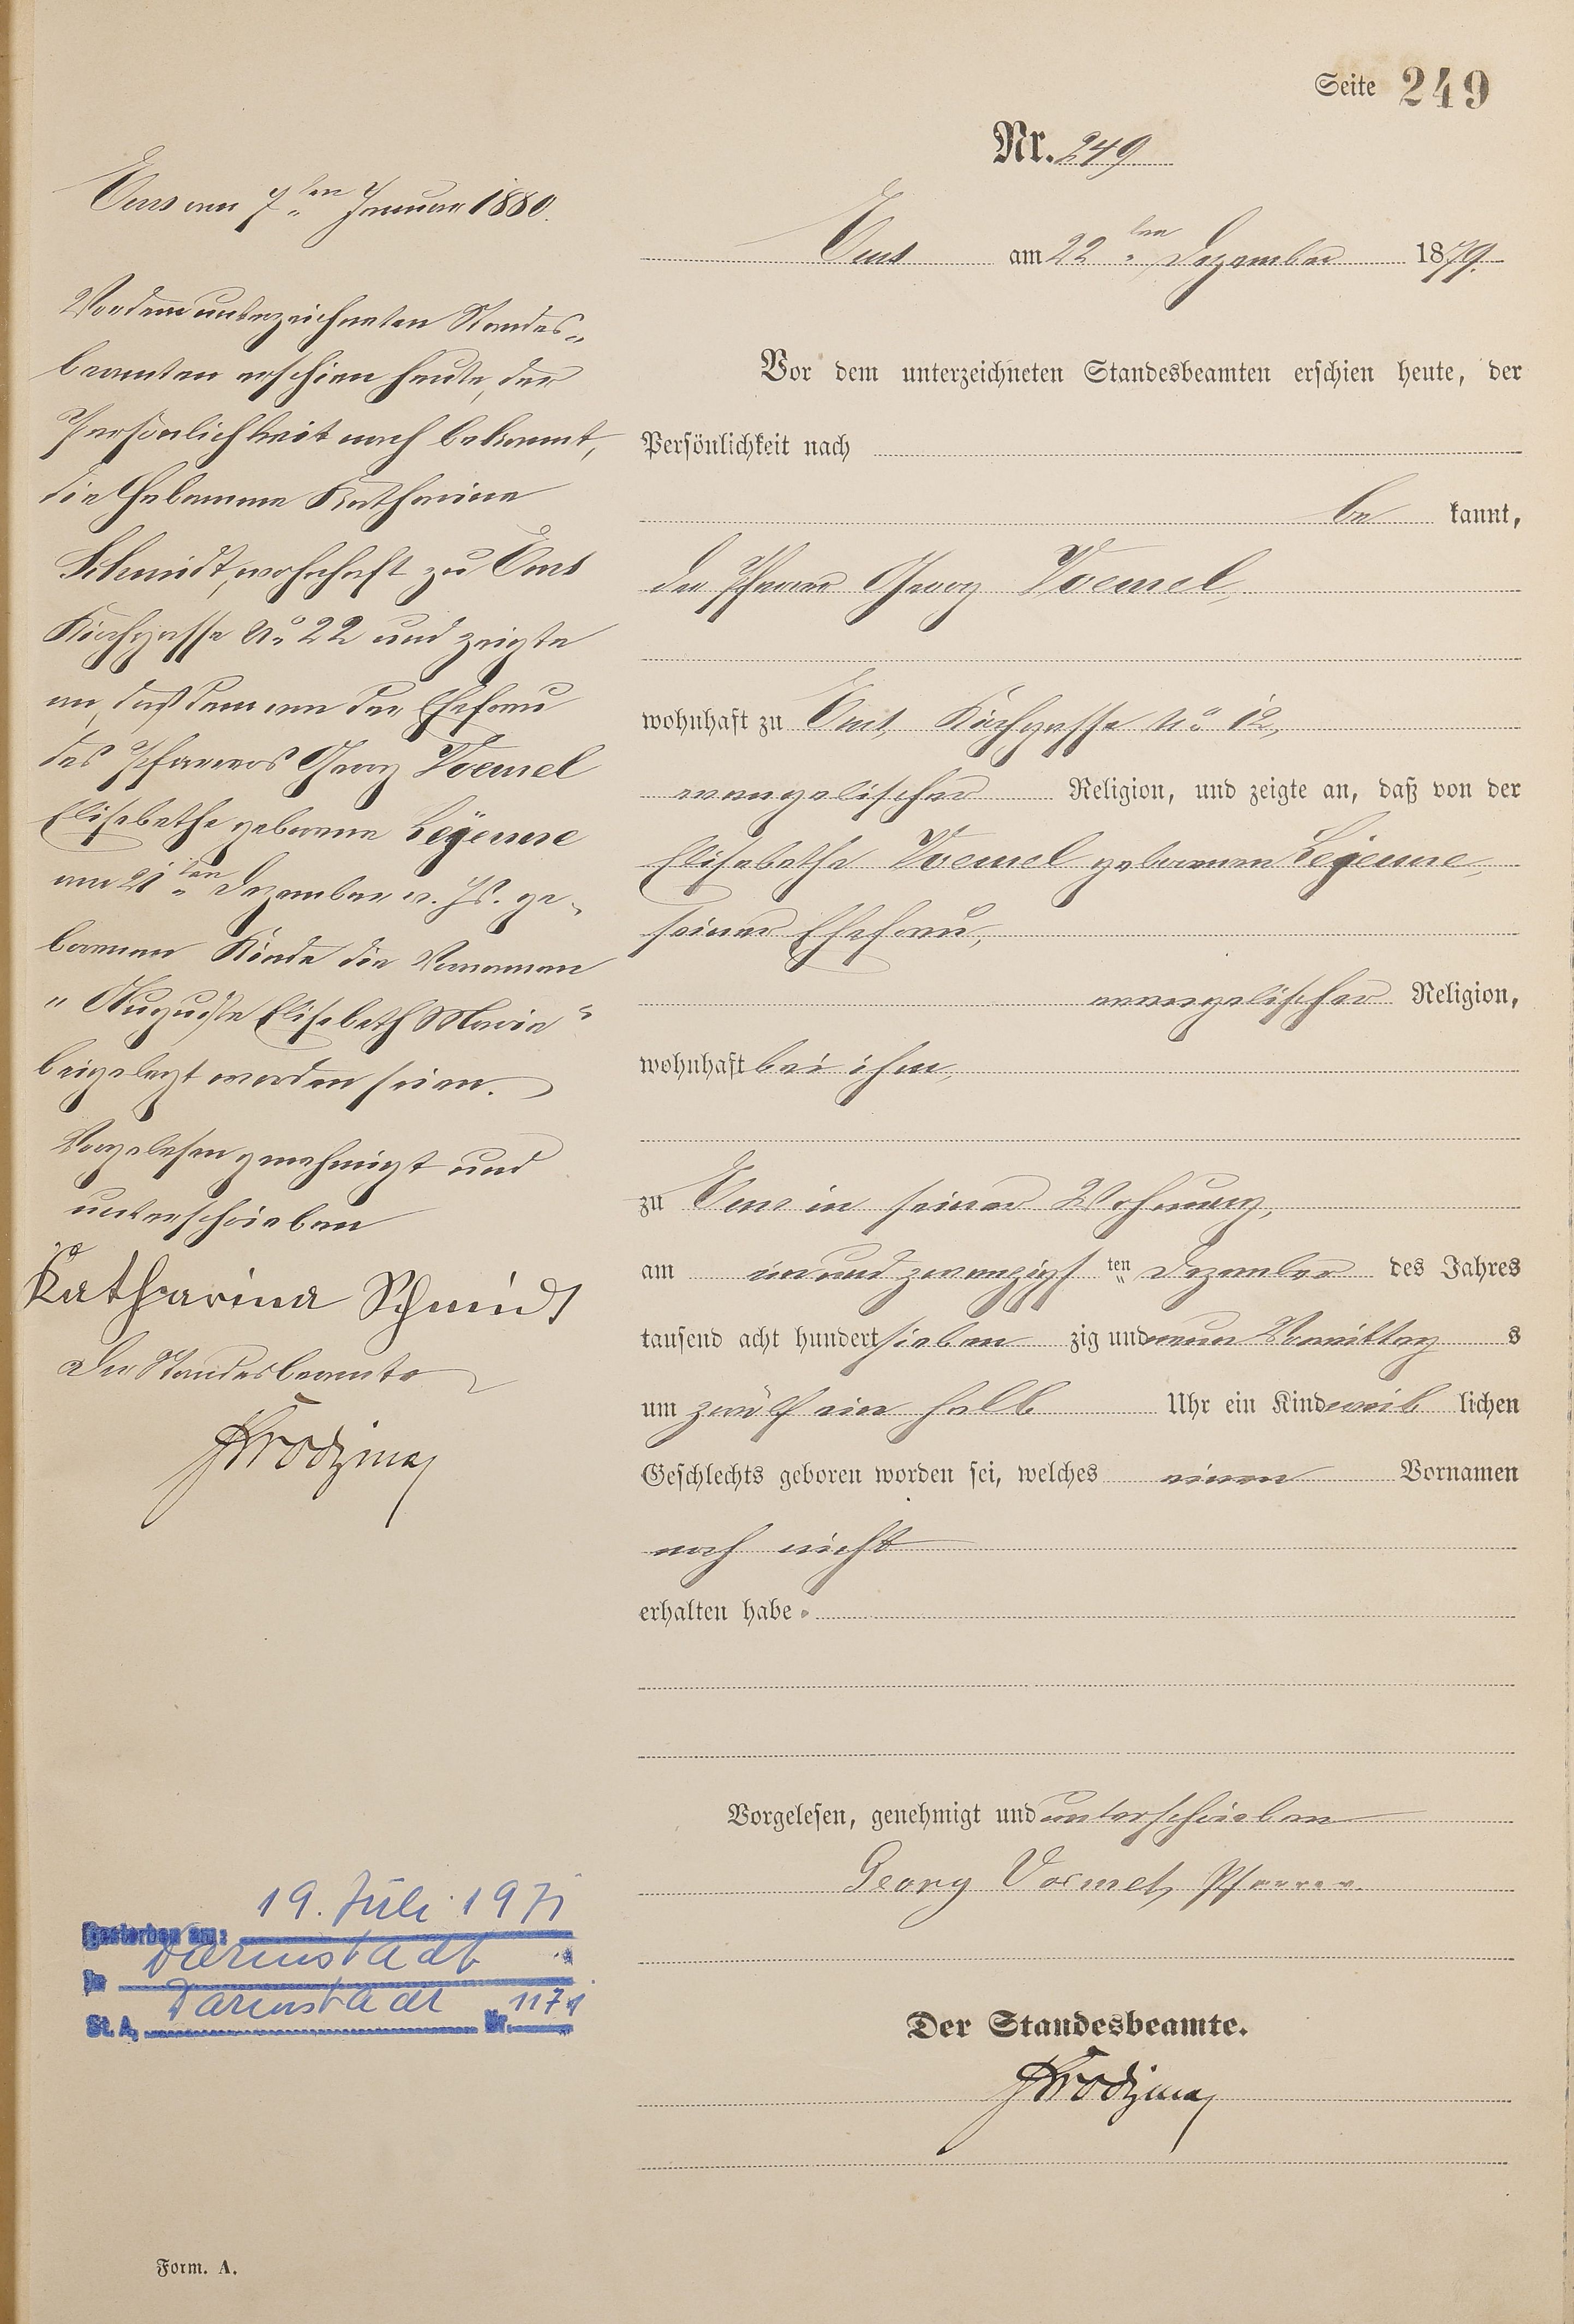 Seite 249
Nr. 249
Ems am 22ten Dezember 1879.
Vor dem unterzeichneten Standesbeamten erschien heute, der
Persönlichkeit nach
be kannt,
der Pfarrer Georg Voemel,
wohnhaft zu Ems, Kirchgasse No 12,
evangelischer Religion, und zeigte an, daß von der
Elisabethe Voemel geborenen Lejeune,
seiner Ehefrau,
evangelischer Religion,
wohnhaft bei ihm,
zu Ems in seiner Wohnung,
am ein und zwanzigsten Dezember des Jahres
tausend acht hundert sieben zig und neun Vormittag s
um zwölf ein halb Uhr ein Kind weib lichen
Geschlechts geboren worden sei, welches einen Vornamen
noch nicht
erhalten habe.
Vorgelesen, genehmigt und unterschrieben
Georg Voemel, Pfarrer.
Der Standesbeamte.
Ems am 7ten Januar 1880.
Vor dem unterzeichneten Standes-
beamten erschien heute, der
Persönlichkeit nach bekannt,
die Hebamme Katharine
Schmidt, wohnhaft zu Ems
Kirchgasse No 22 und zeigte
an, daß dem von der Ehefrau
des Pfarrers Georg Voemel
Elisabethe geborene Lejeune
am 21ten Dezember v. Js. ge-
borenen Kinde die Vornamen
"Auguste Elisabeth Marie"
beigelegt worden seien.
Vorgelesen genehmigt und
unterschrieben
Katharina Schmidt
Der Standesbeamte
Gestorben am: 19. Juli 1971
in Darmstadt
St. A. Darmstadt Nr. 1171
Form. A.